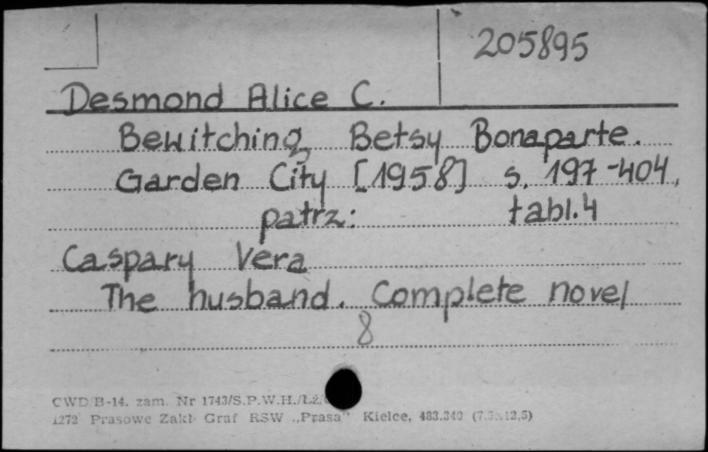 205895
Desmond Alice C.
Bewitching Betsy Bonaparte.
Garden City [1958] s. 197-404,
patrz: tabl.4
Caspary Vera
The husband. Complete novel
8
CWD/B-14. zam. Nr 1743/S.P.W.H.
1272 Prasowe Zakł. Graf RSW „Prasa" Kielce,